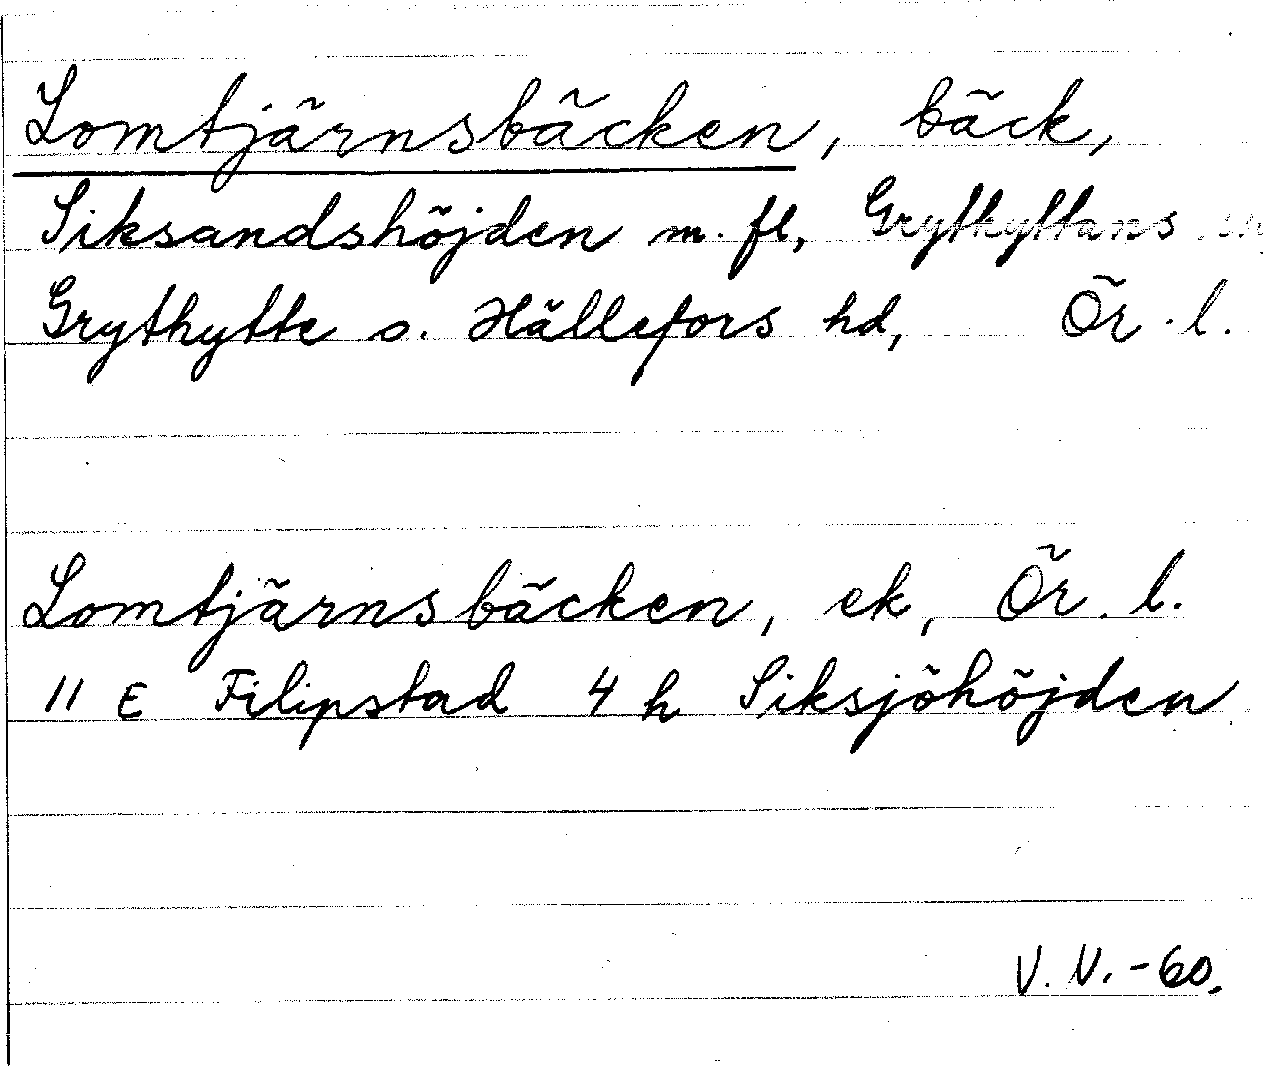 Lomtjärnsbäcken, bäck,
Siksandshöjden m. fl, Grythyttans
Grythytte o. Hällefors hd, Ör. l.
Lomtjärnsbäcken, ek, Ör. l.
11 E Filipstad 4 h Siksjöhöjden
V. V. -60.